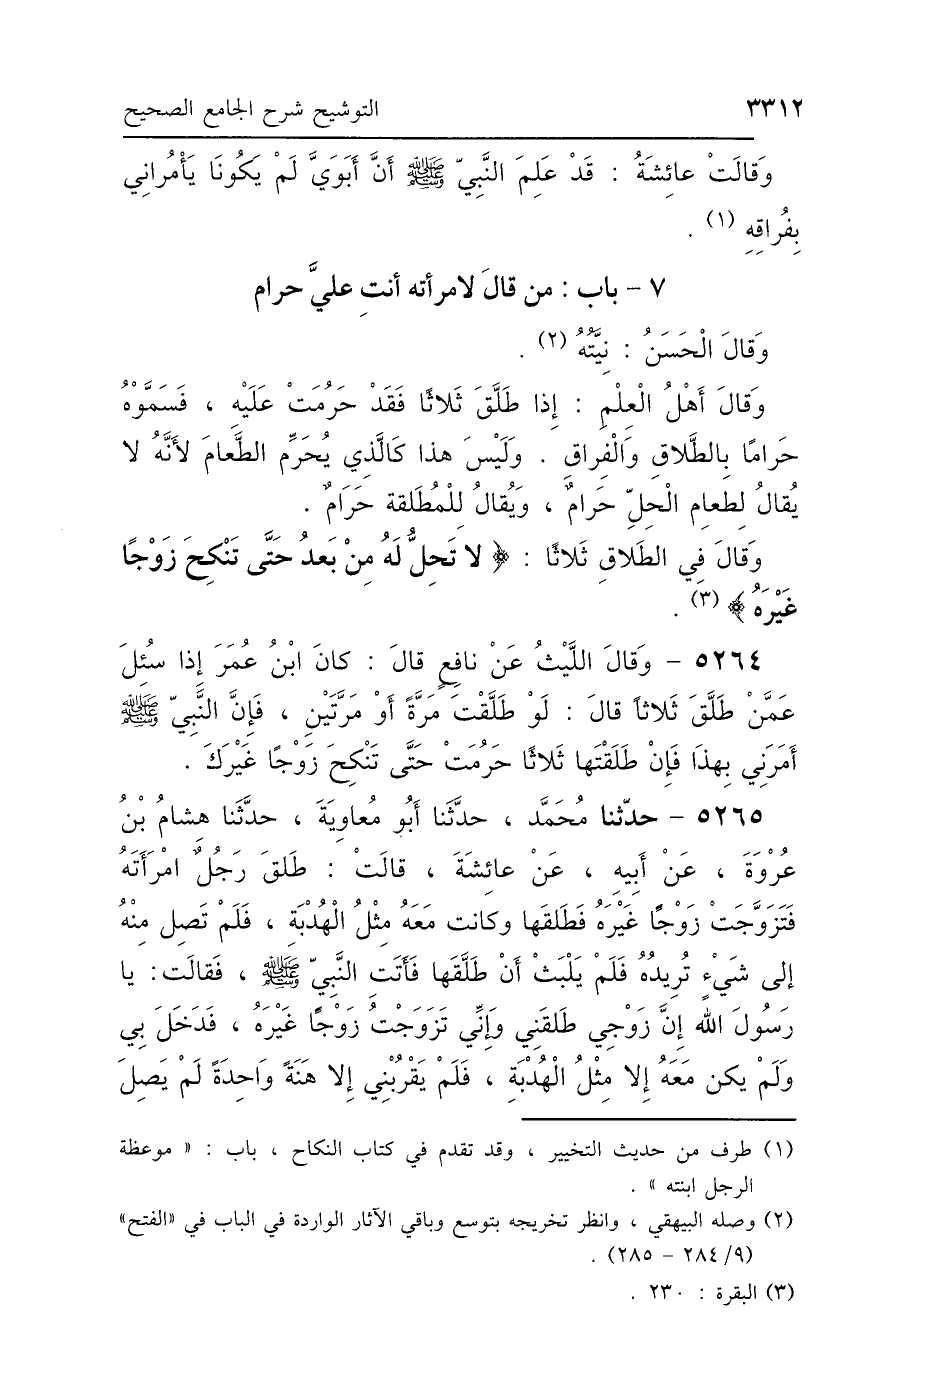 ٣٣١٢ التوشيح شرح الجامع الصحيح
وَقالَتْ عائِشَةُ : قَدْ عَلِمَ النَّبِيّ ﷺ أَنَّ أَبَوَيَّ لَمْ يَكُونَا يَأْمُراني
بِفُراقِهِ (١) .
٧ - باب : من قالَ لامرأته أنتِ عليَّ حرام
وَقالَ الْحَسَنُ : نِيَّتُهُ (٢) .
وَقالَ أَهْلُ الْعِلْمِ : إذا طَلَّقَ ثَلاثًا فَقَدْ حَرُمَتْ عَلَيْهِ ، فَسَمَّوْهُ
حَرامًا بِالطَّلاقِ وَالْفِراقِ . وَلَيْسَ هذا كَالَّذي يُحَرِّم الطَّعامَ لأَنَّهُ لا
يُقالُ لِطعامِ الْحِلِّ حَرامٌ ، وَيُقالُ للْمُطَلقة حَرَامٌ .
وَقالَ فِي الطَلاقِ ثَلاثًا : ﴿ لا تَحِلُّ لَهُ مِنْ بَعدُ حَتَّى تَنْكِحَ زَوْجًا
غَيْرَهُ ﴾ (٣) .
٥٢٦٤ - وَقالَ اللَّيْثُ عَنْ نافِعٍ قالَ : كانَ ابْنُ عُمَرَ إذا سُئِلَ
عَمَّنْ طَلَّقَ ثَلاثاً قالَ : لَوْ طَلَّقْتَ مَرَّةً أَوْ مَرَّتَيْنِ ، فَإِنَّ النَّبِيّ ﷺ
أَمَرَنِي بِهذَا فَإِنْ طَلَقْتَها ثَلاثًا حَرُمَتْ حَتَّى تَنْكِحَ زَوْجًا غَيْرَكَ .
٥٢٦٥ - حدّثنا مُحَمَّد ، حدَّثَنا أَبُو مُعاوِيَةَ ، حدَّثَنا هشامُ بْنُ
عُرْوَةَ ، عَنْ أَبيهِ ، عَنْ عائِشَةَ ، قالَتْ : طَلقَ رَجُلٌ امْرَأَتَهُ
فَتَزَوَّجَتْ زَوْجًا غَيْرَهُ فَطَلقَها وكانت مَعَهُ مثْلُ الْهُدْبَةِ ، فَلَمْ تَصِل مِنْهُ
إلى شَيْءٍ تُريدُهُ فَلَمْ يَلْبَثْ أَنْ طَلَّقَها فَأَتَتِ النَّبِيّ ﷺ ، فَقالَت: يا
رَسُولَ الله إِنَّ زَوْجِي طَلقَنِي وَإِنِّي تَزَوَجْتُ زَوْجًا غَيْرَهُ ، فَدَخَلَ بِي
وَلَمْ يكن مَعَهُ إلا مِثْلُ الْهُدْبَةِ ، فَلَمْ يَقْرُبْنِي إلا هَنَةً وَاحدَةً لَمْ يَصِلَ
(١) طرف من حديث التخيير ، وقد تقدم في كتاب النكاح ، باب : « موعظة
الرجل ابنته » .
(٢) وصله البيهقي ، وانظر تخريجه بتوسع وباقي الآثار الواردة في الباب في «الفتح»
(٩/ ٢٨٤ - ٢٨٥) .
(٣) البقرة : ٢٣٠ .